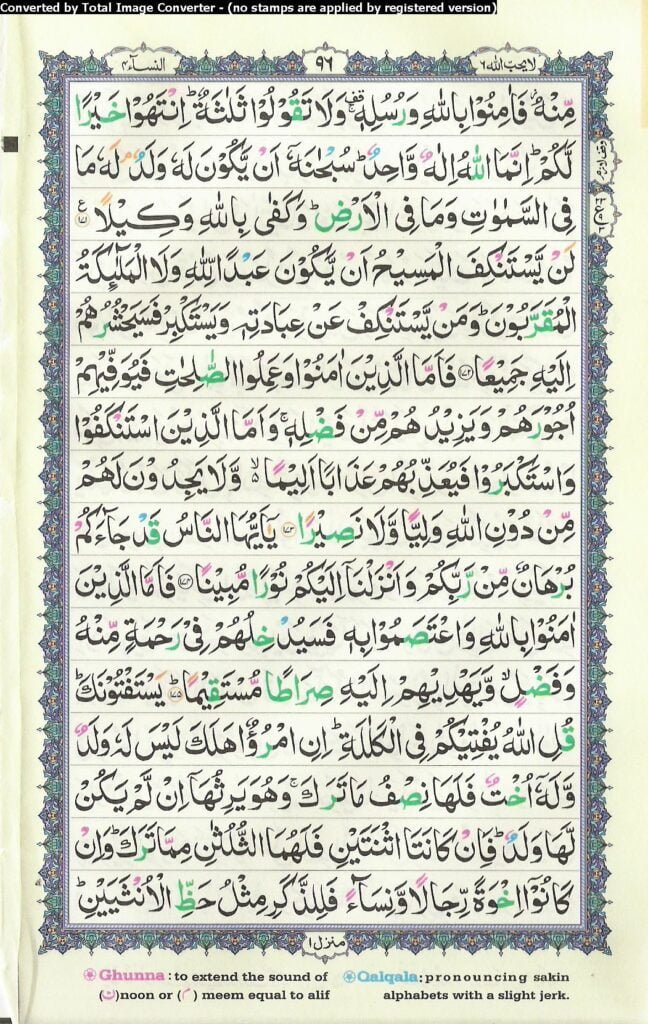 Converted by Total Image Converter - (no stamps are applied by registered version)
لا یحب اللہ ۶
۹۶
النسآء ۴
مِّنْهُ ۫ فَاٰمِنُوْا بِاللّٰهِ وَرُسُلِهٖ ۟ وَلَا تَقُوْلُوْا ثَلٰثَةٌ ؕ اِنْتَهُوْا خَيْرًا
لَّكُمْ ؕ اِنَّمَا اللّٰهُ اِلٰهٌ وَّاحِدٌ ؕ سُبْحٰنَهٗۤ اَنْ يَّكُوْنَ لَهٗ وَلَدٌ ۘ لَهٗ مَا
فِى السَّمٰوٰتِ وَمَا فِى الْاَرْضِ ؕ وَكَفٰى بِاللّٰهِ وَكِيْلًا ﴿۱۷۱﴾ ع
لَنْ يَّسْتَنْكِفَ الْمَسِيْحُ اَنْ يَّكُوْنَ عَبْدًا لِّلّٰهِ وَلَا الْمَلٰٓئِكَةُ
الْمُقَرَّبُوْنَ ؕ وَمَنْ يَّسْتَنْكِفْ عَنْ عِبَادَتِهٖ وَيَسْتَكْبِرْ فَسَيَحْشُرُهُمْ
اِلَيْهِ جَمِيْعًا ﴿۱۷۲﴾ فَاَمَّا الَّذِيْنَ اٰمَنُوْا وَعَمِلُوا الصّٰلِحٰتِ فَيُوَفِّيْهِمْ
اُجُوْرَهُمْ وَيَزِيْدُهُمْ مِّنْ فَضْلِهٖ ۚ وَاَمَّا الَّذِيْنَ اسْتَنْكَفُوْا
وَاسْتَكْبَرُوْا فَيُعَذِّبُهُمْ عَذَابًا اَلِيْمًا ۙ۬ وَّلَا يَجِدُوْنَ لَهُمْ
مِّنْ دُوْنِ اللّٰهِ وَلِيًّا وَّلَا نَصِيْرًا ﴿۱۷۳﴾ يٰۤاَيُّهَا النَّاسُ قَدْ جَآءَكُمْ
بُرْهَانٌ مِّنْ رَّبِّكُمْ وَاَنْزَلْنَاۤ اِلَيْكُمْ نُوْرًا مُّبِيْنًا ﴿۱۷۴﴾ فَاَمَّا الَّذِيْنَ
اٰمَنُوْا بِاللّٰهِ وَاعْتَصَمُوْا بِهٖ فَسَيُدْخِلُهُمْ فِىْ رَحْمَةٍ مِّنْهُ
وَفَضْلٍ ۙ وَّيَهْدِيْهِمْ اِلَيْهِ صِرَاطًا مُّسْتَقِيْمًا ؕ ﴿۱۷۵﴾ يَسْتَفْتُوْنَكَ ؕ
قُلِ اللّٰهُ يُفْتِيْكُمْ فِى الْكَلٰلَةِ ؕ اِنِ امْرُؤٌا هَلَكَ لَيْسَ لَهٗ وَلَدٌ
وَّلَهٗۤ اُخْتٌ فَلَهَا نِصْفُ مَا تَرَكَ ۚ وَهُوَ يَرِثُهَاۤ اِنْ لَّمْ يَكُنْ
لَّهَا وَلَدٌ ؕ فَاِنْ كَانَتَا اثْنَتَيْنِ فَلَهُمَا الثُّلُثٰنِ مِمَّا تَرَكَ ؕ وَاِنْ
كَانُوْۤا اِخْوَةً رِّجَالًا وَّنِسَآءً فَلِلذَّكَرِ مِثْلُ حَظِّ الْاُنْثَيَيْنِ ؕ
منزل ۱
Ghunna : to extend the sound of
(ن) noon or (م) meem equal to alif
Qalqala: pronouncing sakin
alphabets with a slight jerk.